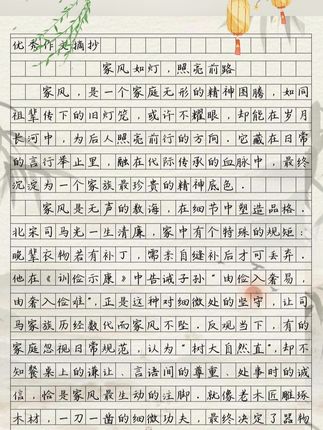 优秀作文摘抄
家风如灯，照亮前路
家风，是一个家庭无形的精神图腾，如同
祖辈传下的旧灯笼，或许不耀眼，却能在岁月
长河中，为后人照亮前行的方向。它藏在日常
的言行举止里，融在代际传承的血脉中，最终
沉淀为一个家族最珍贵的精神底色。
家风是无声的教诲，在细节中塑造品格。
北宋司马光一生清廉，家中有个特殊的规矩：
晚辈衣物若有补丁，需亲自缝补后才可丢弃。
他在《训俭示康》中告诫子孙“由俭入奢易，
由奢入俭难”，正是这种对细微处的坚守，让司
马家族历经数代而家风不坠。反观当下，有的
家庭忽视日常规范，认为“树大自然直”，却不
知餐桌上的谦让、言语间的尊重、处事时的诚
信，恰是家风最生动的注脚。就像老木匠雕琢
木材，一刀一凿的细微功夫，最终决定了器物